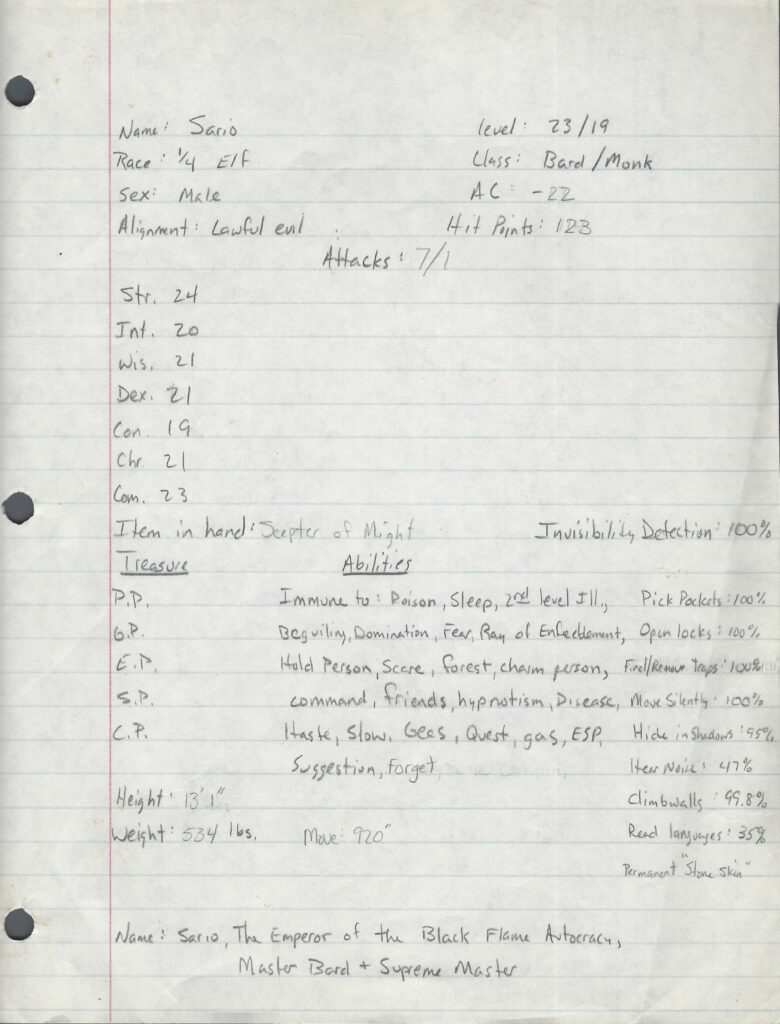 Name: Sario level: 23/19
Race: 1/4 Elf Class: Bard/Monk
Sex: Male AC: -22
Alignment: Lawful evil Hit Points: 123
Attacks: 7/1
Str. 24
Int. 20
Wis. 21
Dex. 21
Con. 19
Chr. 21
Com. 23
Item in hand: Scepter of Might Invisibility Detection: 100%
Treasure Abilities
P.P. Immune to: Poison, Sleep, 2nd level Ill., Pick Pockets: 100%
G.P. Beguiling, Domination, Fear, Ray of Enfeeblement, Open locks: 100%
E.P. Hold Person, Scare, forest, charm person, Find/Remove traps: 100%
S.P. command, friends, hypnotism, Disease, Move Silently: 100%
C.P. Haste, Slow, Geas, Quest, gas, ESP, Hide in Shadows: 95%
Suggestion, Forget, Hear Noise: 47%
Height: 13'1" Climbwalls: 99.8%
Weight: 534 lbs. Move: 920" Read languages: 35%
Permanent "Stone Skin"
Name: Sario, The Emperor of the Black Flame Autocracy,
Master Bard + Supreme Master